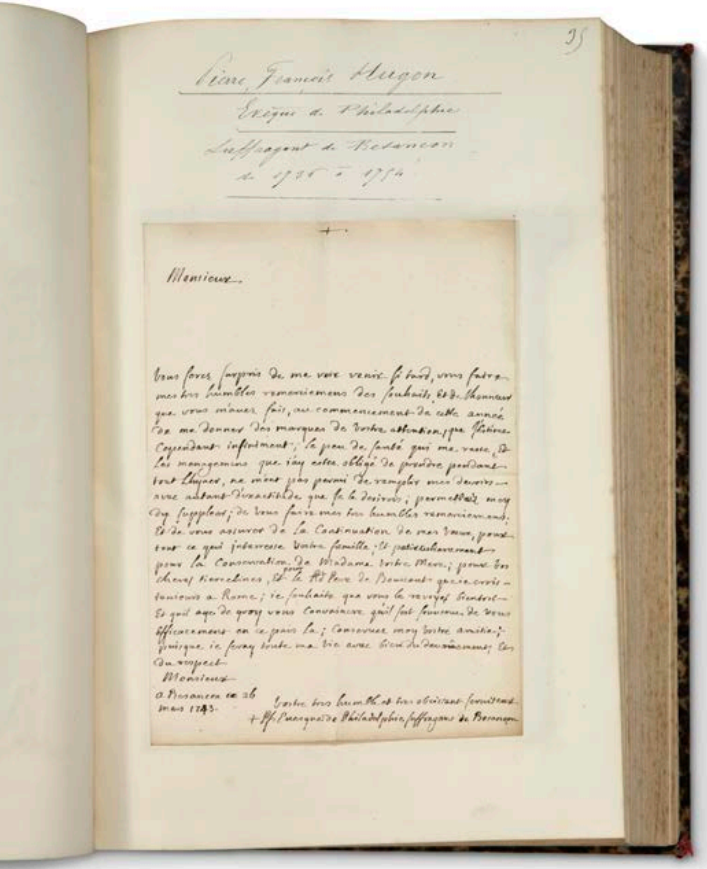 35
Pierre François Hugon
Evêque de Philadelphie
Suffragant de Besancon
de 1736 à 1754
Monsieur.
Vous serez surpris de me voir venir si tard, vous faire
mes tres humbles remerciemens des souhaits, Et de lhonneur
que vous m'avez fait, au commencement de cette année
de me donner des marques de vostre attention, que
Cependant infiniment; le peu de santé qui me reste, Et
Les menagemens que j'ay estez obligé de prendre pendant
tout Lhyuer, ne m'ont pas permi de remplir mes devoirs
avec autant d'exactitude que je le desirois; permettez moy
dy suppleer; de vous faire mes tres humbles remerciemens;
Et de vous assurer de La Continuation de mes vœux, pour
tout ce qui interesse vostre famille; Et particulierement
pour la Conservation de Madame vostre Mere; pour vos
cheres, Et pour le Rd Pere de
tousiours a Rome; ie souhaite que vous le revoyez bientost
Et quil aye de quoy vous Convaincre quil soit souvenu de vous
Efficacement en ce pais La; Conservez moy vostre amitie;
puisque ie seray toute ma vie avec bien du devouement; Et
du respect
Monsieur
a Besancon ce 26
mars 1743.
vostre tres humble et tres obeissant serviteur
+ Pf. Euesque de Philadelphie, suffragant de Besancon